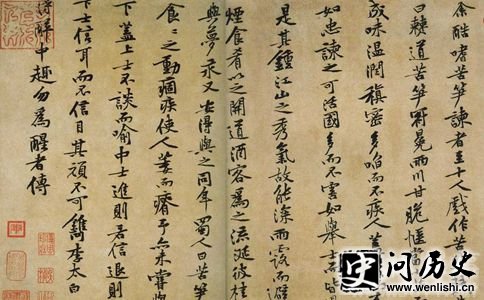 余酷嗜苦笋諫者至十人戲作苦
曰僰道苦笋冠冕兩川甘脆愜當
成味溫潤縝密多啗而不疾人蓋
如忠諫之可活國多而不害如舉士而皆
是其鍾江山之秀氣故能深雨露而避
煙食肴以之開道酒客為之流涎彼桂
與夢永又安得與之同年蜀人曰苦笋
食〻之動痼疾使人萎而瘠予亦未嘗與
下蓋上士不談而喻中士進則若信退則
下士信耳而不信目其頑不可鐫李太白
得醉中趣勿為醒者傳
史问历史
www.wenlishi.cn